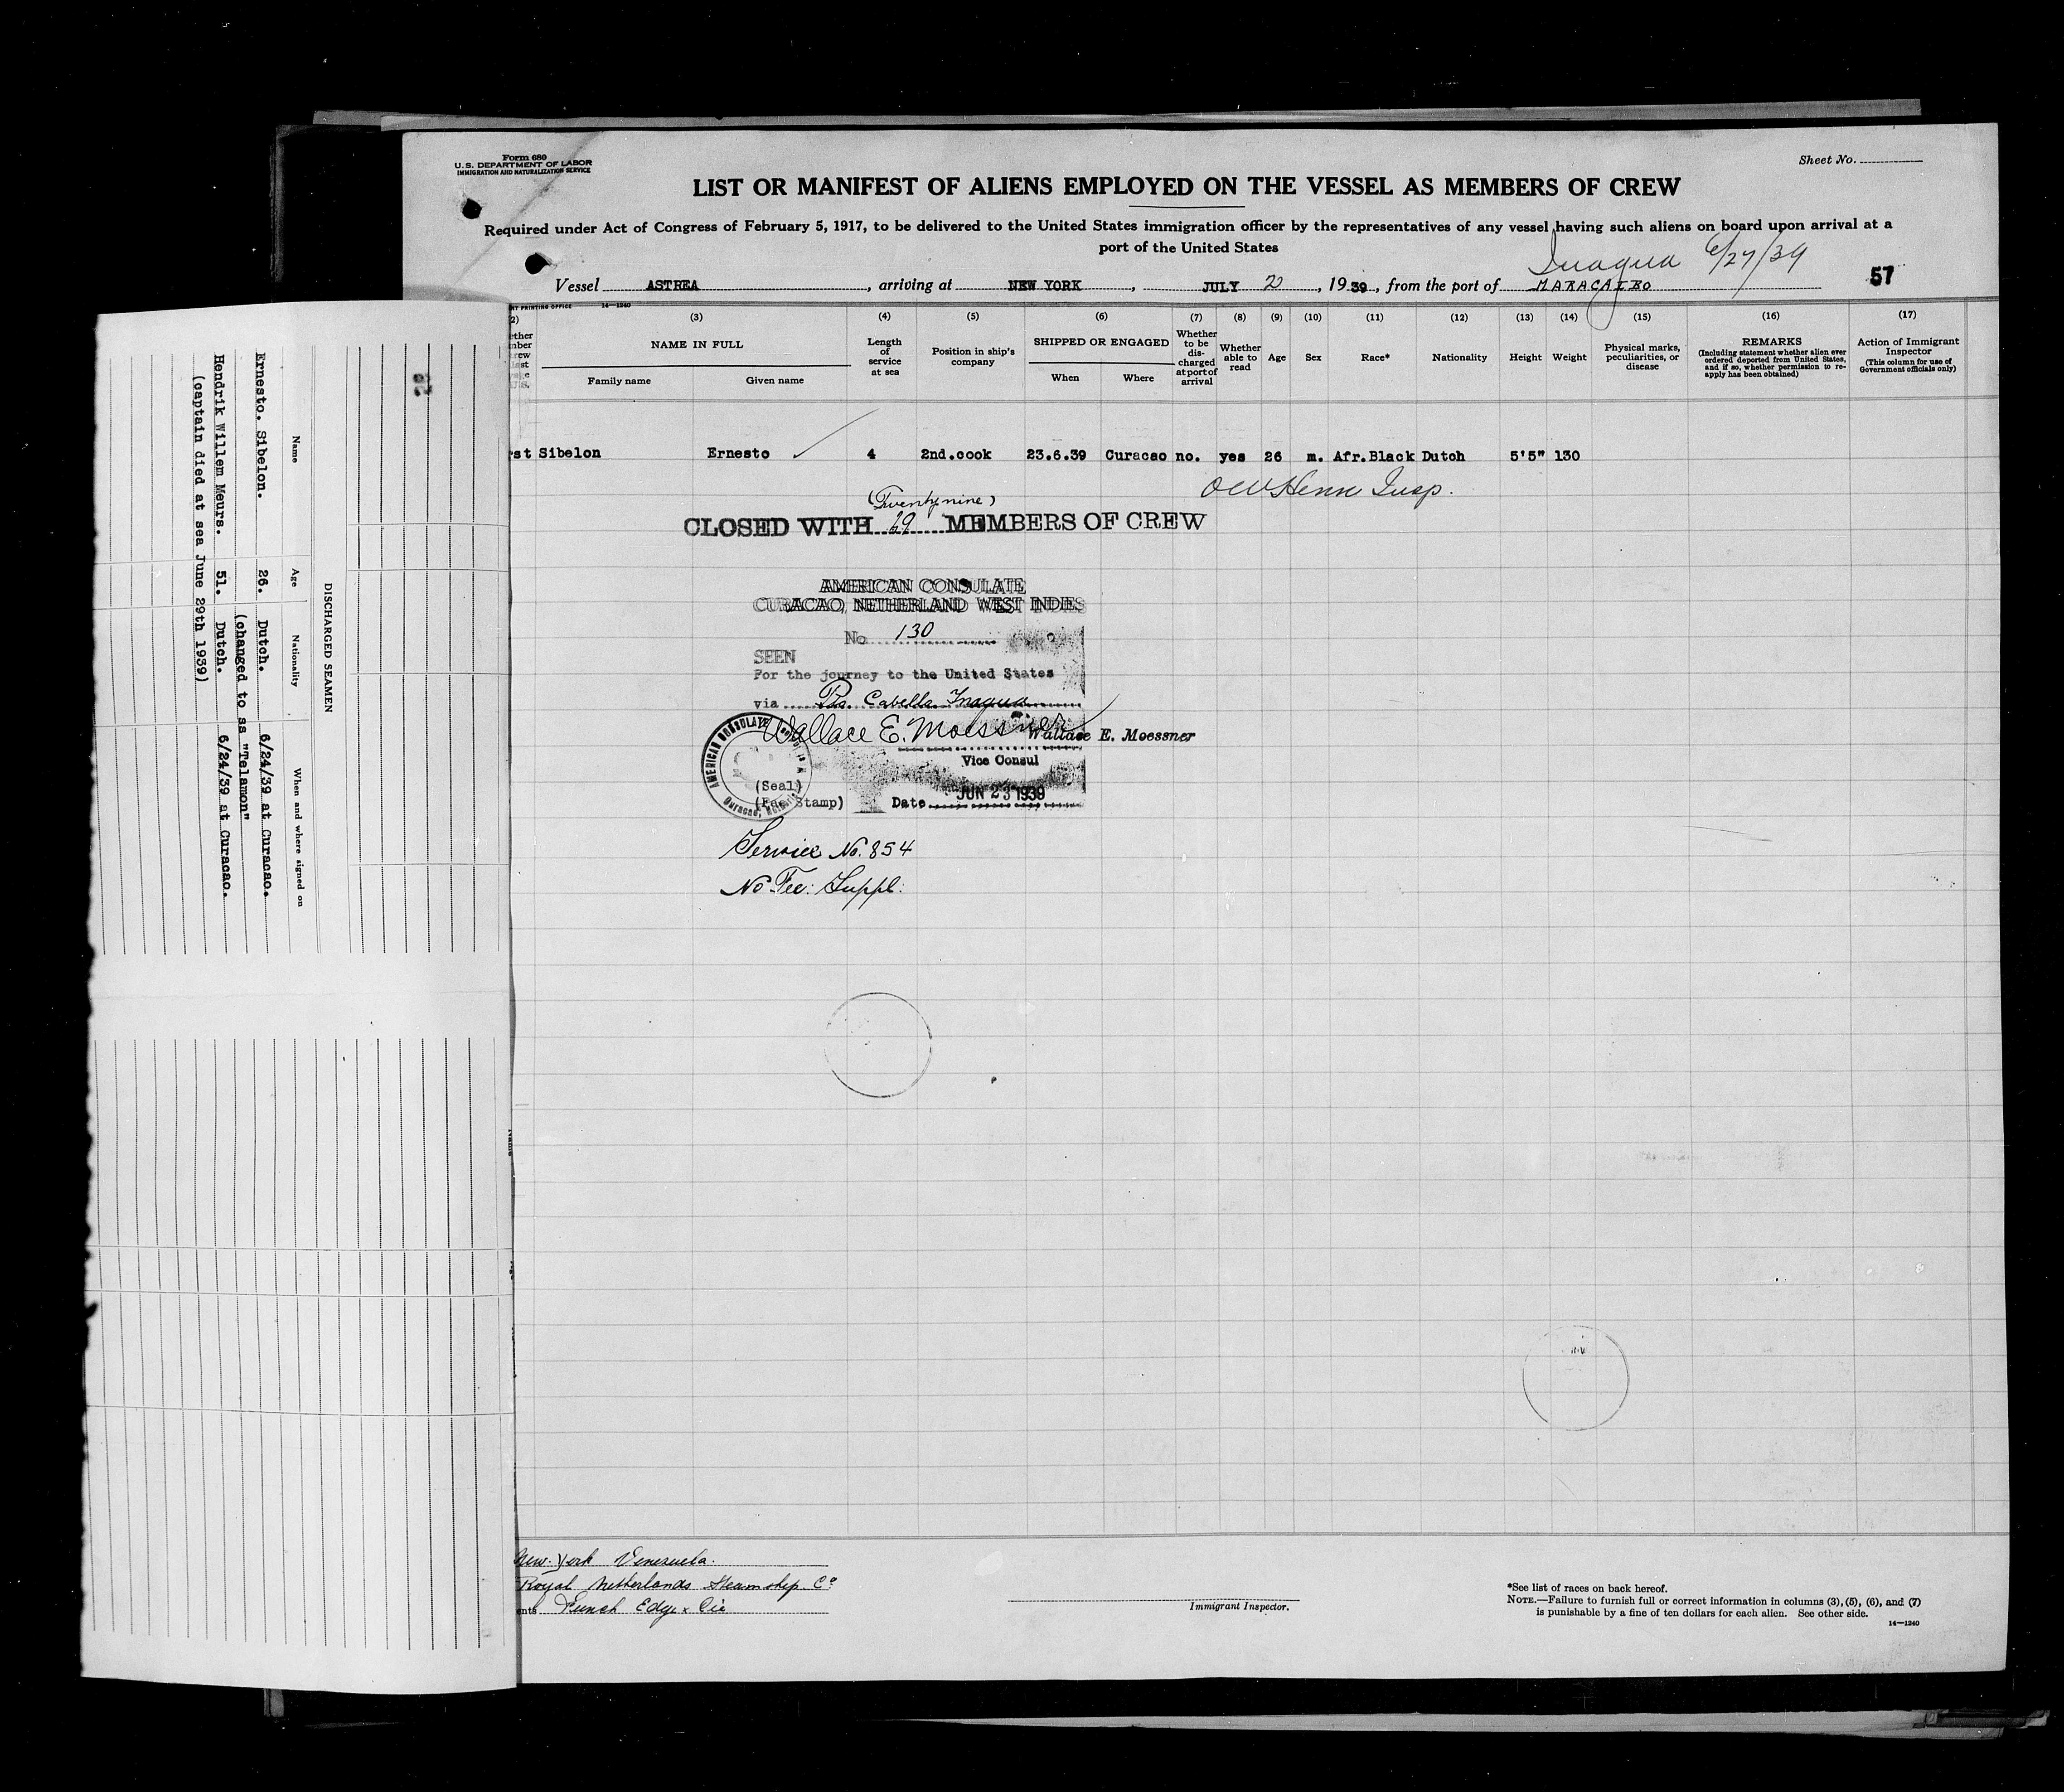 Form 680
U. S. DEPARTMENT OF LABOR
IMMIGRATION AND NATURALIZATION SERVICE
Sheet No.
LIST OR MANIFEST OF ALIENS EMPLOYED ON THE VESSEL AS MEMBERS OF CREW
Required under Act of Congress of February 5, 1917, to be delivered to the United States immigration officer by the representatives of any vessel having such aliens on board upon arrival at a
port of the United States
Inagua 6/27/39
Vessel ASTREA, arriving at NEW YORK, JULY 2, 1939, from the port of MARACAIBO
57
14—1240
(3) (4) (5) (6) (7) (8) (9) (10) (11) (12) (13) (14) (15) (16) (17)
NAME IN FULL
Family name
Given name
Length of service at sea
Position in ship's company
SHIPPED OR ENGAGED
When
Where
Whether to be discharged at port of arrival
Whether able to read
Age
Sex
Race*
Nationality
Height
Weight
Physical marks, peculiarities, or disease
REMARKS
(Including statement whether alien ever ordered deported from United States, and if so, whether permission to reapply has been obtained)
Action of Immigrant Inspector
(This column for use of Government officials only)
st Sibelon Ernesto 4 2nd.cook 23.6.39 Curacao no. yes 26 m. Afr.Black Dutch 5'5" 130
Insp.
(Twenty nine)
CLOSED WITH 29 MEMBERS OF CREW
AMERICAN CONSULATE
CURACAO, NETHERLAND WEST INDIES
No. 130
SEEN
For the journey to the United States
via Pto. Cabello Inagua
Wallace E. Moessner
Wallace E. Moessner
Vice Consul
(Seal)
(Fee Stamp)
Date JUN 23 1939
AMERICAN CONSULATE
Service No. 854
No Fee: Suppl:
DISCHARGED SEAMEN
Name Age Nationality When and where signed on
Ernesto. Sibelon. 26. Dutch. 6/24/39 at Curacao.
(changed to ss "Telamon"
Hendrik Willem Meurs. 51. Dutch. 6/24/39 at Curacao.
(captain died at sea June 29th 1939)
New York Venezuela.
Royal Netherlands Steamship Co
Funch Edye & Cie
Immigrant Inspector.
*See list of races on back hereof.
NOTE.—Failure to furnish full or correct information in columns (3), (5), (6), and (7)
is punishable by a fine of ten dollars for each alien. See other side.
14—1240